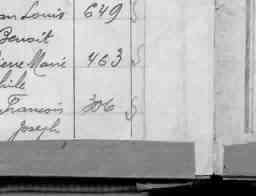 an Louis 649 §
Benoit
ierre Marie 463 §
hile
François 306 §
Joseph